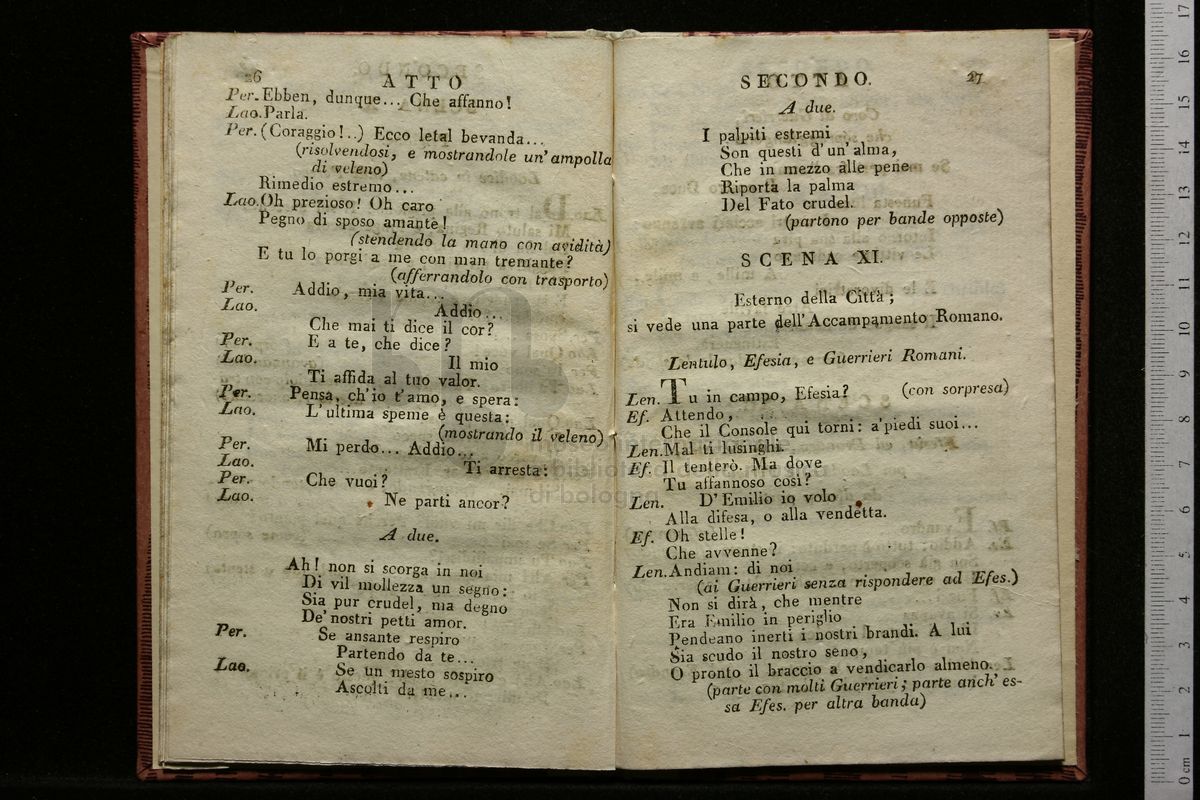 26
ATTO
Per. Ebben, dunque... Che affanno!
Lao. Parla.
Per. (Coraggio!..) Ecco letal bevanda...
(risolvendosi, e mostrandole un' ampolla
di veleno)
Rimedio estremo...
Lao. Oh prezioso! Oh caro
Pegno di sposo amante!
(stendendo la mano con avidità)
E tu lo porgi a me con man tremante?
(afferrandolo con trasporto)
Per. Addio, mia vita...
Lao. Addio...
Che mai ti dice il cor?
Per. E a te, che dice?
Lao. Il mio
Ti affida al tuo valor.
Per. Pensa, ch'io t'amo, e spera:
Lao. L'ultima speme è questa:
(mostrando il veleno)
Per. Mi perdo... Addio...
Lao. Ti arresta:
Per. Che vuoi?
Lao. Ne parti ancor?
A due.
Ah! non si scorga in noi
Di vil mollezza un segno:
Sia pur crudel, ma degno
De' nostri petti amor.
Per. Se ansante respiro
Partendo da te...
Lao. Se un mesto sospiro
Ascolti da me...
SECONDO.
27
A due.
I palpiti estremi
Son questi d'un' alma,
Che in mezzo alle pene
Riporta la palma
Del Fato crudel.
(partono per bande opposte)
SCENA XI.
Esterno della Città;
si vede una parte dell'Accampamento Romano.
Lentulo, Efesia, e Guerrieri Romani.
Len. Tu in campo, Efesia? (con sorpresa)
Ef. Attendo,
Che il Console qui torni: a'piedi suoi...
Len. Mal ti lusinghi.
Ef. Il tenterò. Ma dove
Tu affannoso così?
Len. D'Emilio io volo
Alla difesa, o alla vendetta.
Ef. Oh stelle!
Che avvenne?
Len. Andiam: di noi
(ai Guerrieri senza rispondere ad Efes.)
Non si dirà, che mentre
Era Emilio in periglio
Pendeano inerti i nostri brandi. A lui
Sia scudo il nostro seno,
O pronto il braccio a vendicarlo almeno.
(parte con molti Guerrieri; parte anch' es-
sa Efes. per altra banda)
0 cm 1 2 3 4 5 6 7 8 9 10 11 12 13 14 15 16 17